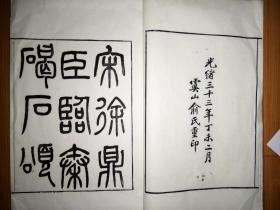 光緒三十三年丁未二月
虞山俞氏重印
宋徐鼎
臣臨秦
碣石頌